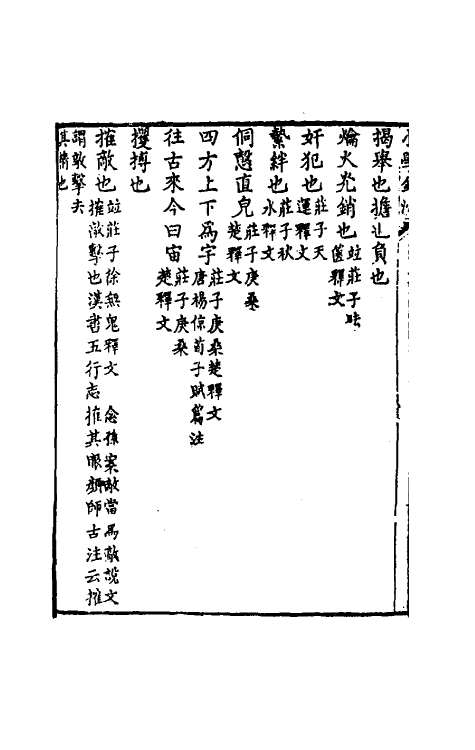 揭舉也擔也負也
爚火光銷也竝莊子胠
篋釋文
奸犯也莊子天
運釋文
縶絆也莊子秋
水釋文
侗慤直皃莊子庚桑
楚釋文
四方上下爲宇莊子庚桑楚釋文
唐楊倞荀子賦篇注
往古來今曰宙莊子庚桑
楚釋文
攫搏也
搉敵也竝莊子徐無鬼釋文 念孫案敵當爲敲說文
搉敲擊也漢書五行志搉其眼顏師古注云搉
謂敲擊去
其精也